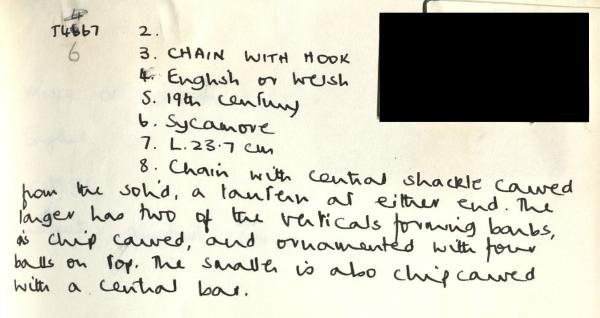 4
T4667 2.
6
3. CHAIN WITH HOOK
4. English or Welsh
5. 19th century
6. Sycamore
7. L. 23.7 cm
8. Chain with central shackle carved
from the solid, a lantern at either end. The
larger has two of the verticals forming barbs,
is chip carved, and ornamented with four
balls on top. The smaller is also chip carved
with a central bar.